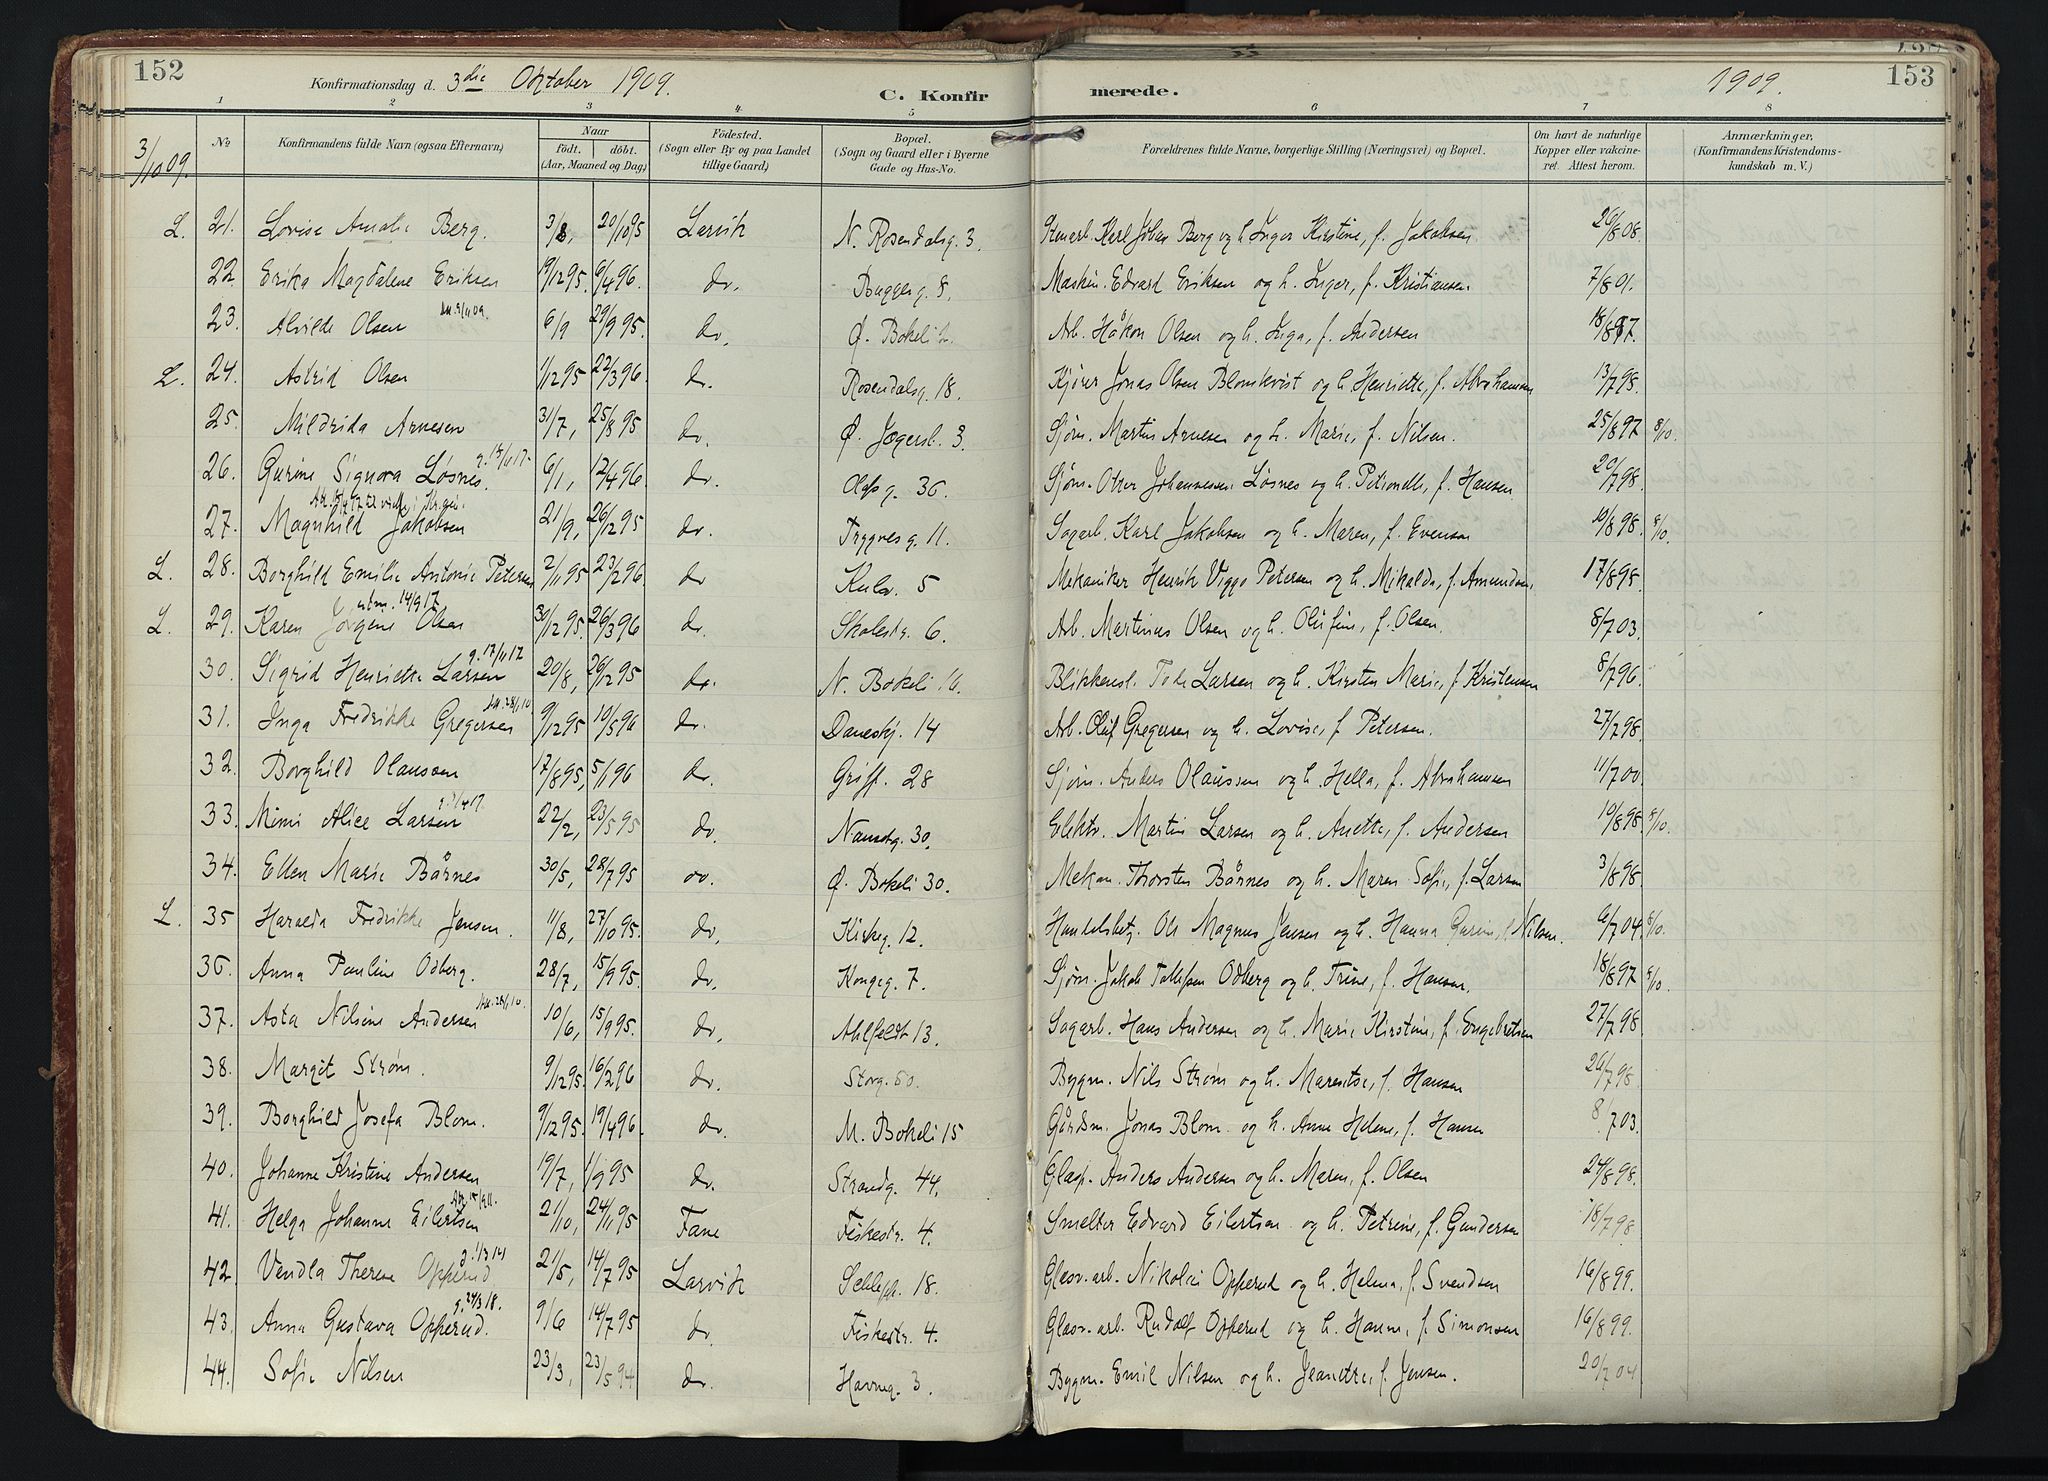 152
Konfirmationsdag d. 3die Oktober 1909.
C. Konfirmerede.
1909.
153
1 2 3 4 5 6 7 8
3/10 09.
No
Konfirmandens fulde Navn (ogsaa Efternavn)
Naar
födt. döbt.
(Aar, Maaned og Dag)
Födested.
(Sogn eller By og paa Landet tillige Gaard)
Bopæl.
(Sogn og Gaard eller i Byerne Gade og Hus-No.
Forældrenes fulde Navne, borgerlige Stilling (Næringsvei) og Bopæl.
Om havt de naturlige Kopper eller vaccineret. Attest herom.
Anmærkninger.
(Konfirmandens Kristendomskundskab m. V.)
L. 21. Lovise Amalie Berg. 3/8, 20/10 95 Larvik N. Rosendalsg. 3. Karl Johan Berg og h. Inger Kirstine, f. Jakobsen 26/8 08.
22. Erika Magdalene Eriksen 19/12 95. 6/4 96. do. Buggesg. 8. Maskin. Edvard Eriksen og h. Inger, f. Kristiansen. 7/8 01.
23. Alvilde Olsen 6/9 29/9 95. do. Ø. Bokeli 2. Arb. Håkon Olsen og h. Inga, f. Andersen 18/8 97.
L. 24. Astrid Olsen 1/12 95 22/3 96. do. Rosendalsg. 18. Kjører Jonas Olsen Blomkvist og h. Henriette, f. Abrahamsen 13/7 98.
25. Mildrida Arnesen 31/7, 25/8 95 do. Ø. Jegersb. 3. Sjøm. Martin Arnesen og h. Marie, f. Nilsen. 25/8 97 8/10.
26. Gurine Signora Løsnes. 6/1, 12/4 96. do. Olafsg. 36. Sjøm. Otter Johannessen Løsnes og h. Petronelle, f. Hansen 20/7 98.
27. Magnhild Jakobsen 21/9, 26/12 95 do. Trygvesg. 11. Sagarb. Karl Jakobsen og h. Maren, f. Evensen 10/8 98. 8/10.
L. 28. Borghild Emilie Antonie Petersen 2/11 95 23/2 96. do Kulv. 5 Mekaniker Henrik Viggo Petersen og h. Mikalda, f. Amundsen, 17/8 98.
L. 29. Karen Jørgine Olsen 30/12 95. 26/3 96 do. Skolestr. 6. Arb. Martinius Olsen og h. Olufine, f. Olsen. 8/7 03.
30. Sigrid Henriette Larsen 20/8, 26/12 95 do. N. Bokeli 16. Blikkensl. Larsen og h. Kirsten Marie, f. Kristensen 8/7 96.
31. Inga Fredrikke Gregersen 9/12 95 10/5 96 do. Daneskj. 14 Arb. Oluf Gregersen og h. Lovise, f. Petersen. 27/7 98.
32. Borghild Olaussen 17/8 95, 5/1 96 do. Griff. 28 Sjøm. Anders Olaussen og h. Hella, f. Abrahamsen 11/7 00.
33. Mimi Alice Larsen 22/2, 23/5 95 do. Nansetg. 30. Elektr. Martin Larsen og h. Anette, f. Andersen 10/8 98. 8/10.
34. Ellen Marie Bårnes 30/5, 28/7 95 do. Ø. Bokeli 30. Mekan. Thorsten Bårnes og h. Maren Sofie, f. Larsen 3/8 98.
L. 35 Haralda Fredrikke Jensen. 11/8, 27/10 95. do, Kirkeg. 12. Handelsbetj. Ole Magnus Jensen og h. Hanna Gurine, f. Nilsen. 6/7 04. 8/10.
36. Anna Pauline Odberg. 28/7, 15/9 95. do, Kongeg. 7. Sjøm. Jakob Tollefsen Odberg og h. Trine, f. Hansen. 18/8 97 8/10.
37. Asta Nilsine Andersen 10/6, 15/9 95. do, Ahlfeldt 13. Sagarb. Hans Andersen og h. Marie Kirstine, f. Engebretsen 27/7 98.
38. Margit Strøm. 9/12 95. 16/2 96 do. Storg. 50. Bygm. Nils Strøm og h. Marentse, f. Hansen 26/7 98.
39. Borghild Josefa Blom. 9/12 95. 19/4 96. do. M. Bokeli 15 Gårdsm. Jonas Blom og h. Anne Helene, f. Hansen 8/7 03.
40. Johanne Kristine Andersen 19/7, 1/9 95 do. Strandg. 44. Glasp. Anders Andersen og h. Maren, f. Olsen 24/8 98.
41. Helga Johanne Eilertsen 21/10, 24/11 95 Fane Fiskestr. 4. Smelter Edvard Eilertsen og h. Petrine, f. Gundersen 18/7 98
42. Vendla Therese Opperud 21/5, 14/7 95 Larvik Schlepp. 18. Glasv. arb. Nikolai Opperud og h. Helena, f. Svendsen 16/8 99.
43. Anna Gustava Opperud. 9/6 14/7 95 do Fiskestr. 4. Glasv. arb. Rudolf Opperud og h. Hanne, f. Simonsen 16/8 99.
44. Sofie Nilsen 23/3, 23/5 94 do. Havneg. 3. Bygm. Emil Nilsen og h. Jeanette, f. Jensen. 20/7 04